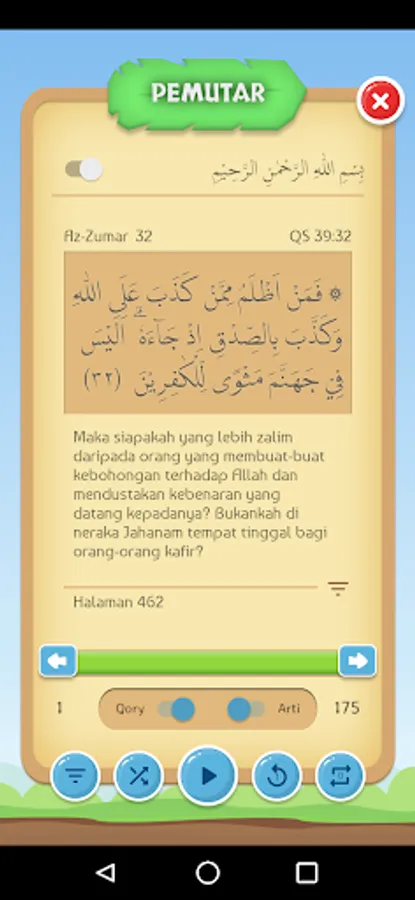 PEMUTAR
بِسْمِ اللهِ الرَّحْمٰنِ الرَّحِيْمِ
Az-Zumar 32 QS 39:32
۞ فَمَنْ اَظْلَمُ مِمَّنْ كَذَبَ عَلَى اللهِ
وَكَذَّبَ بِالصِّدْقِ اِذْ جَاۤءَهٗۗ اَلَيْسَ
فِيْ جَهَنَّمَ مَثْوًى لِّلْكٰفِرِيْنَ (٣٢)
Maka siapakah yang lebih zalim
daripada orang yang membuat-buat
kebohongan terhadap Allah dan
mendustakan kebenaran yang
datang kepadanya? Bukankah di
neraka Jahanam tempat tinggal bagi
orang-orang kafir?
Halaman 462
1 Qory Arti 175